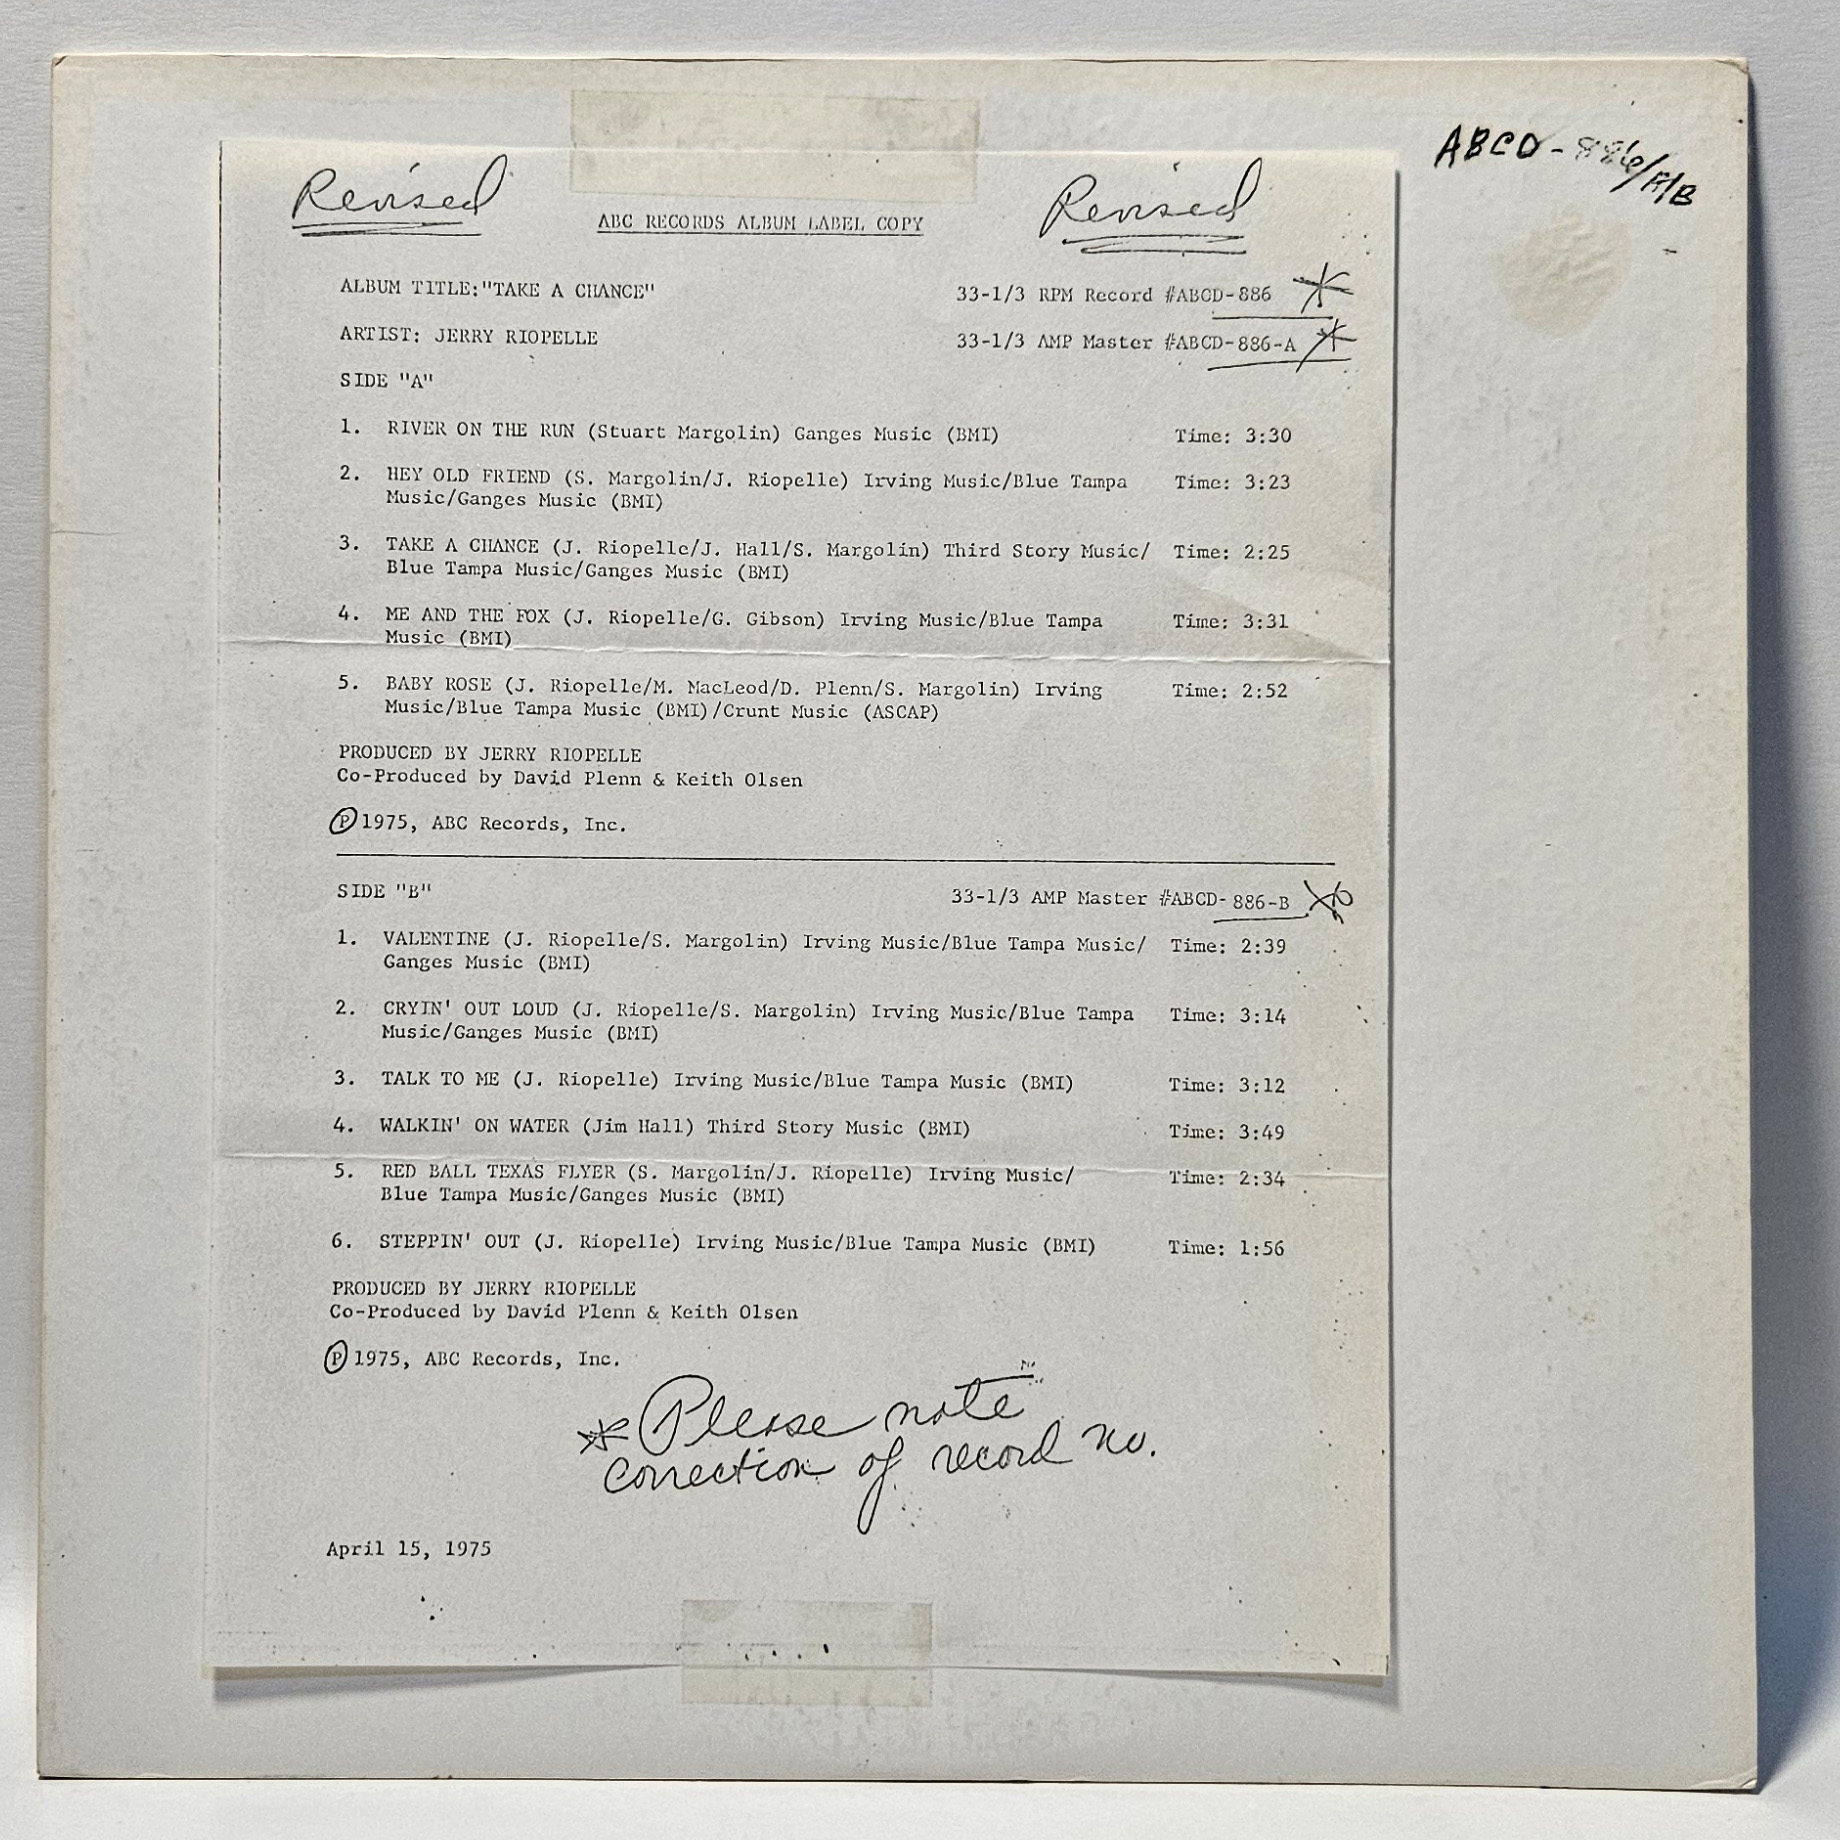 ABCD-886/A/B
Revised
Revised
ABC RECORDS ALBUM LABEL COPY
ALBUM TITLE:"TAKE A CHANCE"
33-1/3 RPM Record #ABCD-886 *
ARTIST: JERRY RIOPELLE
33-1/3 AMP Master #ABCD-886-A *
SIDE "A"
1. RIVER ON THE RUN (Stuart Margolin) Ganges Music (BMI) Time: 3:30
2. HEY OLD FRIEND (S. Margolin/J. Riopelle) Irving Music/Blue Tampa Time: 3:23
Music/Ganges Music (BMI)
3. TAKE A CHANCE (J. Riopelle/J. Hall/S. Margolin) Third Story Music/ Time: 2:25
Blue Tampa Music/Ganges Music (BMI)
4. ME AND THE FOX (J. Riopelle/G. Gibson) Irving Music/Blue Tampa Time: 3:31
Music (BMI)
5. BABY ROSE (J. Riopelle/M. MacLeod/D. Plenn/S. Margolin) Irving Time: 2:52
Music/Blue Tampa Music (BMI)/Crunt Music (ASCAP)
PRODUCED BY JERRY RIOPELLE
Co-Produced by David Plenn & Keith Olsen
Ⓟ1975, ABC Records, Inc.
SIDE "B"
33-1/3 AMP Master #ABCD-886-B *
1. VALENTINE (J. Riopelle/S. Margolin) Irving Music/Blue Tampa Music/ Time: 2:39
Ganges Music (BMI)
2. CRYIN' OUT LOUD (J. Riopelle/S. Margolin) Irving Music/Blue Tampa Time: 3:14
Music/Ganges Music (BMI)
3. TALK TO ME (J. Riopelle) Irving Music/Blue Tampa Music (BMI) Time: 3:12
4. WALKIN' ON WATER (Jim Hall) Third Story Music (BMI) Time: 3:49
5. RED BALL TEXAS FLYER (S. Margolin/J. Riopelle) Irving Music/ Time: 2:34
Blue Tampa Music/Ganges Music (BMI)
6. STEPPIN' OUT (J. Riopelle) Irving Music/Blue Tampa Music (BMI) Time: 1:56
PRODUCED BY JERRY RIOPELLE
Co-Produced by David Plenn & Keith Olsen
Ⓟ1975, ABC Records, Inc.
* Please note
correction of record no.
April 15, 1975